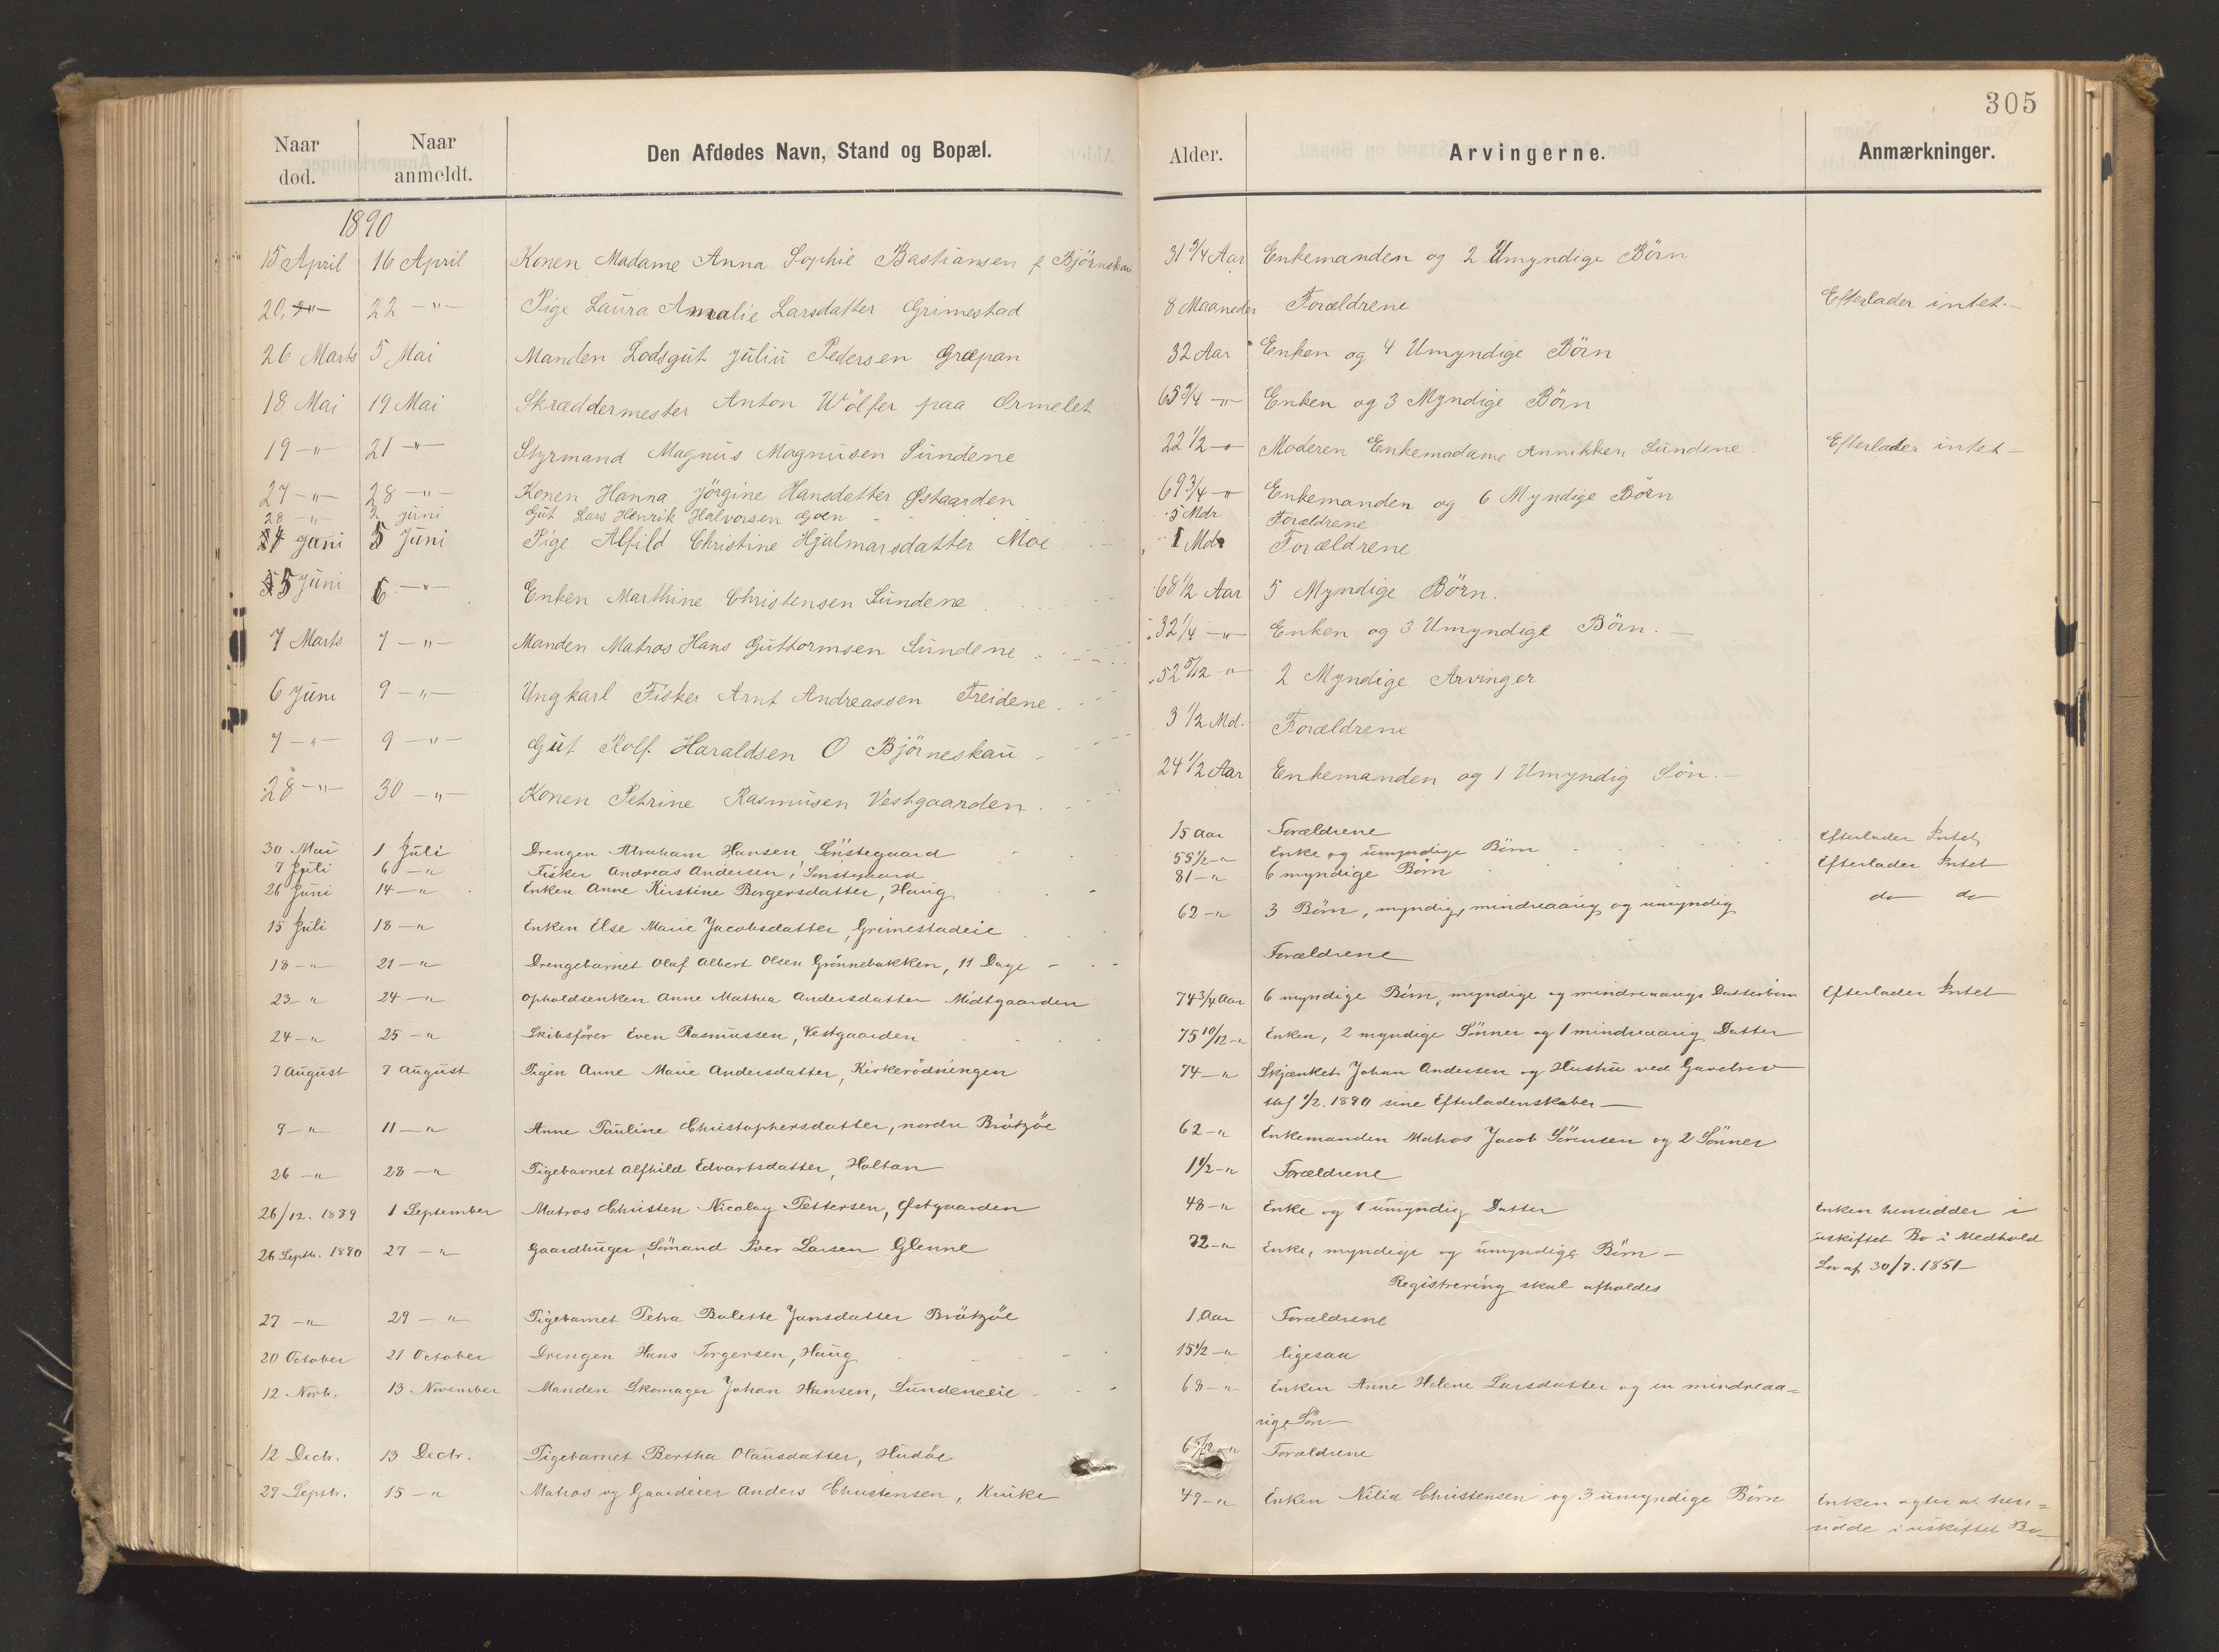 305
Naar død. Naar anmeldt. Den Afdødes Navn, Stand og Bopæl. Alder. Arvingerne. Anmærkninger.
1890
15 April 16 April Konen Madame Anna Sophie Bastiansen f Björneskau 31 3/4 Aar Enkemanden og 2 Umyndige Börn
20. -"- 22 -"- Pige Laura Amalie Larsdatter Grimestad 8 Maaneder Forældrene Efterlader intet.-
26 Marts 5 Mai Manden Lodsgut Juliu Pedersen Græpan 32 Aar Enken og 4 Umyndige Börn
18 Mai 19 Mai Skræddermester Anton Wölfer paa Ormelet 65 3/4 -"- Enken og 3 Myndige Börn
19 -"- 21 -"- Styrmand Magnus Magnusen Sundene 22 1/2 -"- Moderen Enkemadame Annikken Sundene. Efterlader intet -
27 -"- 28 -"- Konen Hanna Jörgine Hansdatter Østaarden 69 3/4 -"- Enkemanden og 6 Myndige Börn
28 -"- 2 Juni Gut Lars Henrik Halvorsen Goen 5 Mdr Forældrene
4 Juni 5 Juni Pige Alfild Christine Hjalmarsdatter Moe 1 Mdr Forældrene
5 Juni 6 -"- Enken Marthine Christensen Sundene 68 1/2 Aar 5 Myndige Börn.
7 Marts 7 -"- Manden Matros Hans Guttormsen Sundene 32 1/4 -"- Enken og 3 Umyndige Börn. -
6 Juni 9 -"- Ungkarl Fisker Arnt Andreassen Treidene 52 5/12 -"- 2 Myndige Arvinger
7 -"- 9 -"- Gut Rolf Haraldsen O Björneskau 3 1/2 Md. Forældrene
28 -"- 30 -"- Konen Petrine Rasmusen Vestgaarden 24 1/2 Aar Enkemanden og 1 Umyndig Sön. -
30 Mai 1 Juli Drengen Abraham Hansen, Sönstegaard 15 Aar Forældrene Efterlader Intet
7 Juli 6 -"- Fisker Andreas Andersen, Sönstegaard 55 1/2 -"- Enke og umyndige Börn Efterlader Intet
26 Juni 14 -"- Enken Anne Kirstine Borgersdatter, Haug 81 -"- 6 myndige Börn do do
15 Juli 18 -"- Enken Else Marie Jacobsdatter, Grimestadeie 62 -"- 3 Börn, myndig, mindreaarig og umyndig
18 -"- 21 -"- Drengebarnet Olaf Albert Olsen Grönnebakken, 11 Dage Forældrene
23 -"- 24 -"- Opholdsenken Anne Mathea Andersdatter Midtgaarden 74 3/4 Aar 6 myndige Börn, myndige og mindreaarige Datterbörn Efterlader Intet
24 -"- 25 -"- Skibsfører Even Rasmussen, Vestgaarden 75 10/12 -"- Enken, 2 myndige Sönner og 1 mindreaarig Datter
7 August 7 August Pigen Anne Marie Andersdatter, Kirkerödningen 74 -"- Skjænket Johan Andersen og Hustru ved Gavebrev
af 1/2. 1890 sine Efterladenskaber -
9 -"- 11 -"- Anne Pauline Christophersdatter, nordre Brötzöe 62 -"- Enkemanden Matros Jacob Sörensen og 2 Sönner
26 -"- 28 -"- Pigebarnet Alfhild Edvartsdatter, Holtan 1 1/2 -"- Forældrene
26/12. 1889 1 September Matros Christen Nicolay Pettersen, Østgaarden 48 -"- Enke og 1 umyndig Datter Enken hensidder i
uskiftet Bo i Medhold
26 Septb. 1890 27 -"- Gaardbruger, Sömand Iver Larsen Glenne 72 -"- Enke, myndige og umyndige Börn -
Lov af 30/7. 1851 -
Registrering skal afholdes
27 -"- 29 -"- Pigebarnet Petra Bolette Jansdatter Brötzöe 1 Aar Forældrene
20 October 21 October Drengen Hans Torgersen, Haug 15 1/2 -"- ligesaa
12 Novb. 13 November Manden Skomager Johan Hansen, Sundeneeie 68 -"- Enken Anne Helene Larsdatter og en mindreaa=
rig Sön -
12 Decbr. 13 Decbr. Pigebarnet Bertha Olausdatter, Hudöe 6 5/12 -"- Forældrene
29 Septb. 15 -"- Matros og Gaardeier Anders Christensen, Kruke 49 -"- Enken Nilia Christensen og 3 umyndige Börn Enken agter at hen=
sidde i uskiftet Bo -